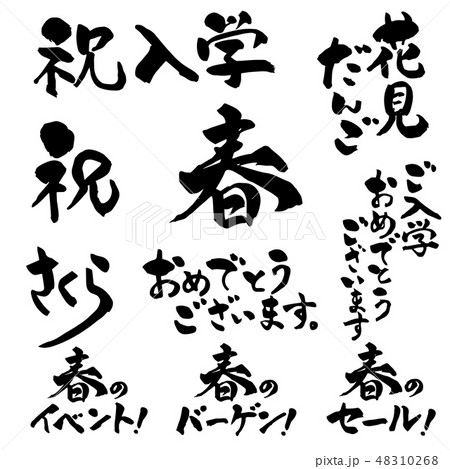 祝入学
花見
だんご
祝
春
ご入学
おめでとう
ございます
さくら
おめでとう
ございます。
春の
イベント!
春の
バーゲン!
春の
セール!
PIXTA
pixta.jp - 48310268